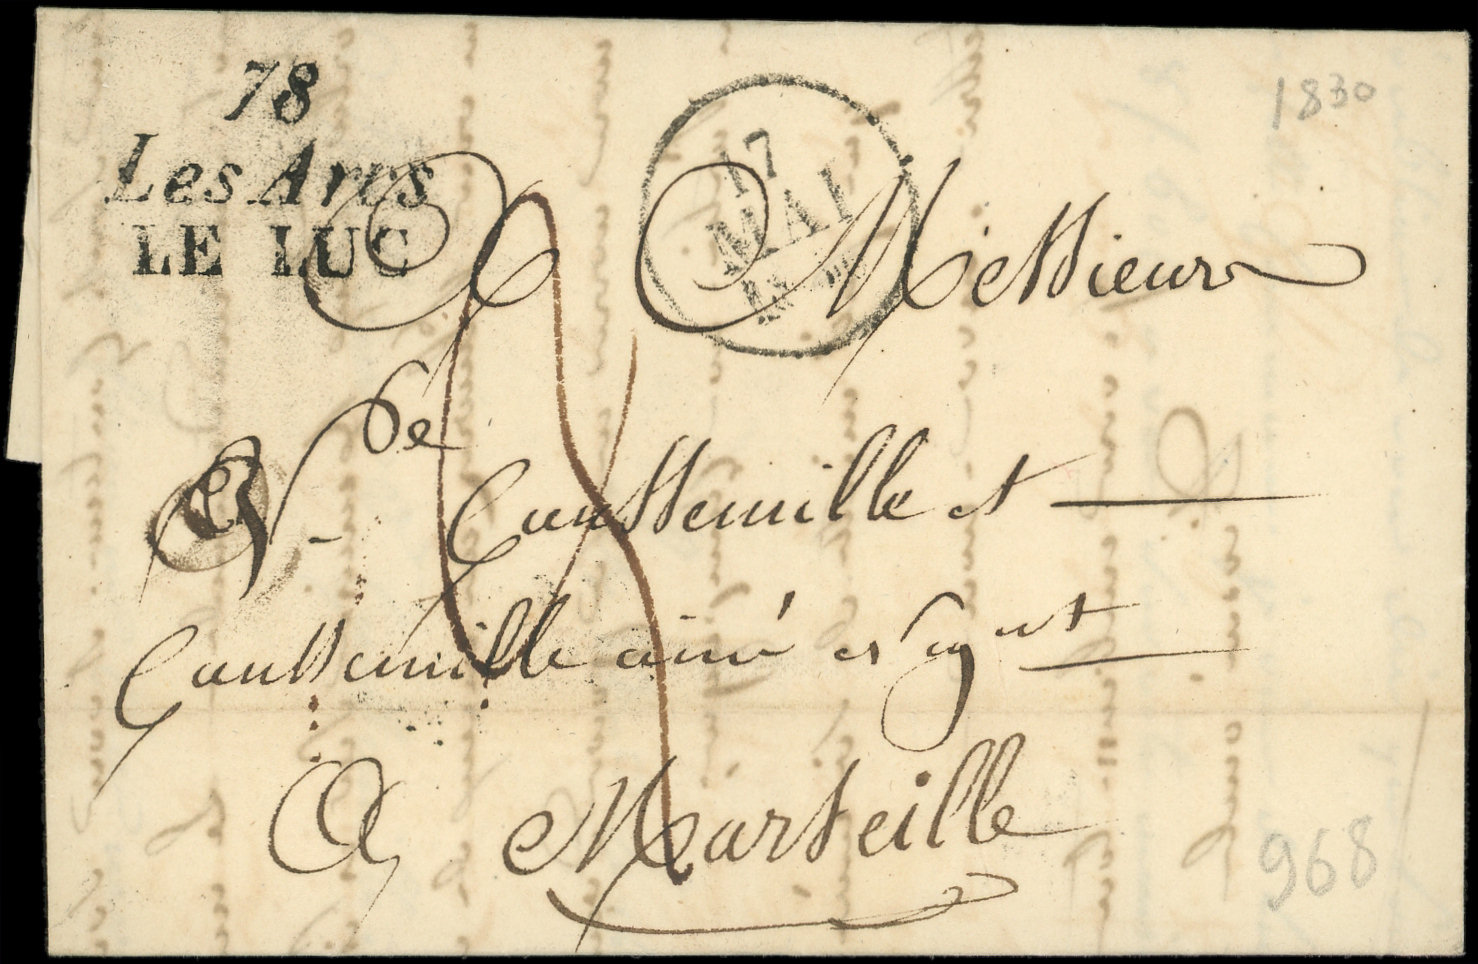 78
Les Arcs
LE LUC
17
MAI
1830
Messieurs
Vve Causserouille et
Causserouille ainé et Cy
A Marseille
968